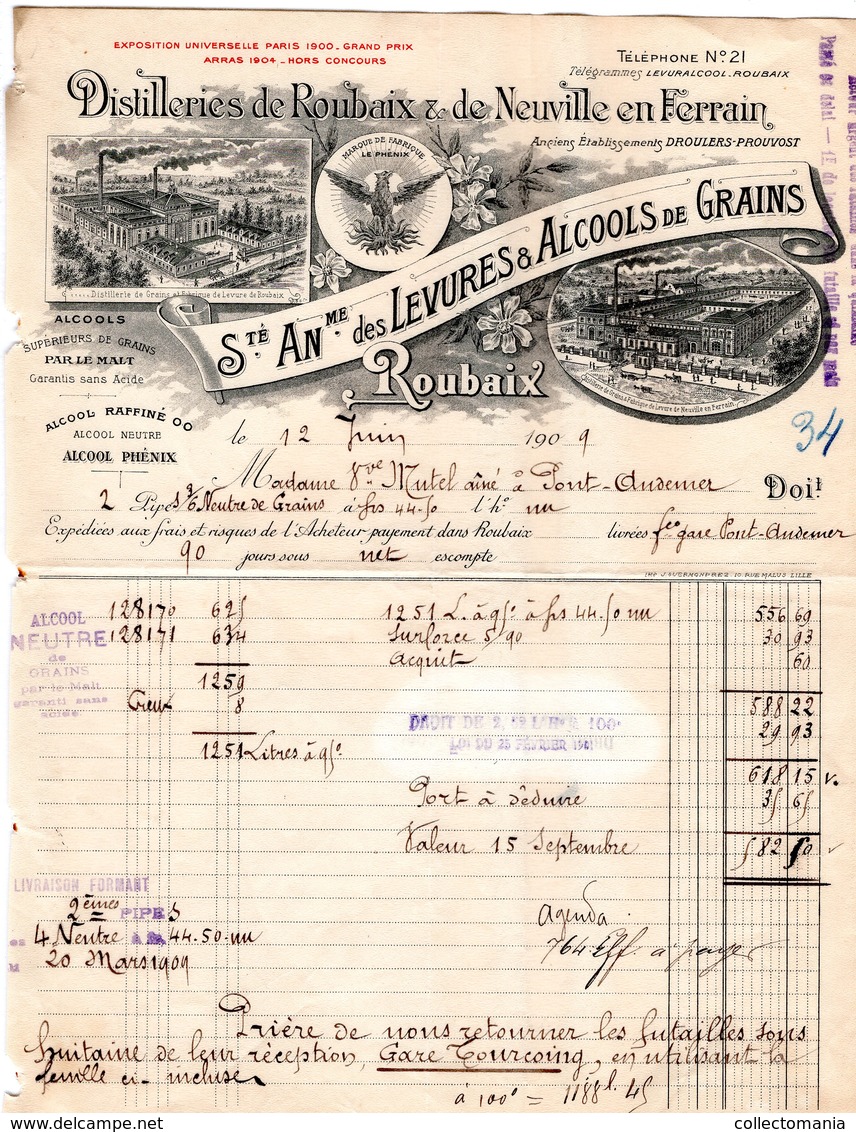 EXPOSITION UNIVERSELLE PARIS 1900 - GRAND PRIX
ARRAS 1904 - HORS CONCOURS
TÉLÉPHONE No. 21
Télégrammes LEVURALCOOL-ROUBAIX
Distilleries de Roubaix & de Neuville en Ferrain
Anciens Établissements DROULERS-PROUVOST
MARQUE DE FABRIQUE
LE PHÉNIX
Distillerie de Grains et Fabrique de Levure de Roubaix
STÉ ANME des LEVURES & ALCOOLS DE GRAINS
Roubaix
Distillerie de Grains & Fabrique de Levure de Neuville en Ferrain
ALCOOLS
SUPÉRIEURS DE GRAINS
PAR LE MALT
Garantis sans Acide
ALCOOL RAFFINÉ OO
ALCOOL NEUTRE
ALCOOL PHÉNIX
34
le 12 Juin 1909
Madame Vve Mutel aîné à Pont-Audemer Doit
2 Pipes 3/6 Neutre de Grains à frs 44.50 l'ho nu
Expédiées aux frais et risques de l'Acheteur payement dans Roubaix livrées fco gare Pont-Audemer
90 jours sous net escompte
IMP. J. GUERMONPREZ 10 RUE MALUS LILLE
ALCOOL
NEUTRE
de
GRAINS
par le Malt
garanti sans
acide
128170 625 1251 L. à 95° à frs 44.50 nu 556 69
128171 634 Surforce 5/90 30 93
Acquit 60
1259
Creux 8 588 22
DROIT DE
LOI DU 25 FÉVRIER 1901
29 93
1251 Litres à 95°
618 15
Port à déduire 35 65
Valeur 15 Septembre 582 50
LIVRAISON FORMANT
2èmes PIPES
4 Neutre à frs 44.50 nu
20 Mars 1909
Agenda
764 Eff. à payer
Prière de nous retourner les futailles sous
huitaine de leur réception, Gare Tourcoing, en utilisant la
feuille ci-incluse
à 100° = 1188 l. 45
delcampe.net
collectomania